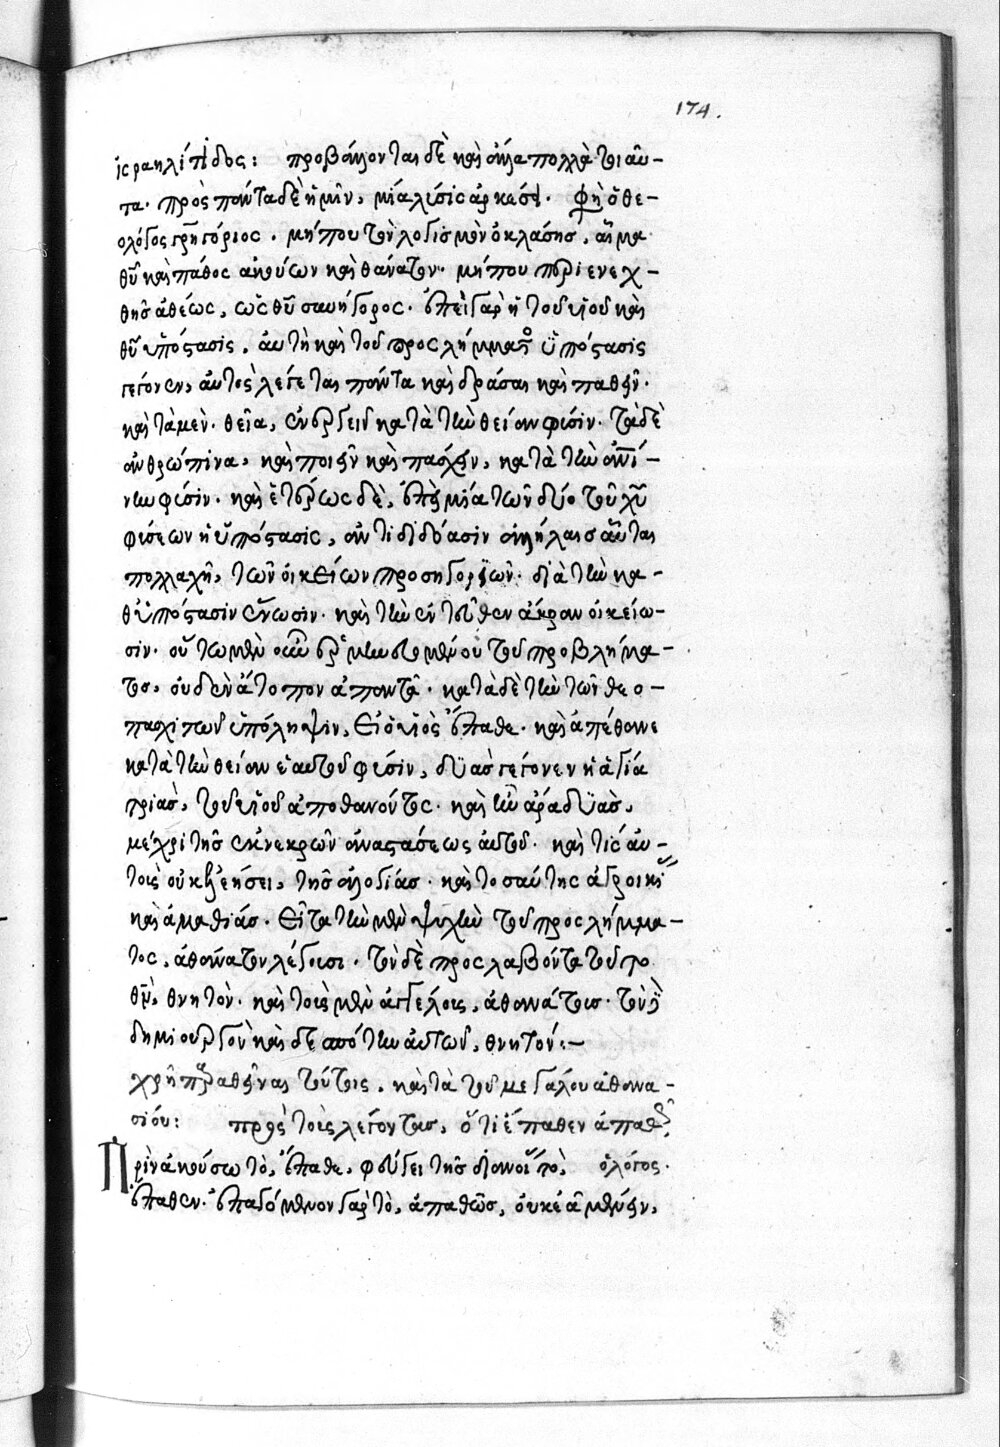 174.
ἰσραηλίτιδος: προβάλλονται δὲ καὶ ἄλλα πολλὰ τοιαῦ-
τα. πρὸς πάντα δὲ ἡμῖν, μία λύσις ἀρκέσει. φησὶ ὁ θε-
ολόγος γρηγόριος. μήπου τὸν λογισμὸν ὀκλάσης, αἷμα
θῦ καὶ πάθος ἀκούων καὶ θάνατον. μήπου περιενεχ-
θῆς ἀθέως, ὡς θῦ συνήγορος. ἐπεὶ γὰρ ἡ τοῦ υἱοῦ καὶ
θῦ ὑπόστασις, αὐτὴ καὶ τοῦ προσλήμματος ὑπόστασις
γέγονεν, αὐτὸς λέγεται πάντα καὶ δρᾶσαι καὶ παθεῖν.
καὶ τὰ μὲν θεῖα, ἐνεργεῖν κατὰ τὴν θείαν φύσιν. τὰ δὲ
ἀνθρώπινα, καὶ ποιεῖν καὶ πάσχειν, κατὰ τὴν ἀνίνην φύσιν. καὶ ἑτέρως δὲ, ἐπεὶ μία τῶν δύο τοῦ χῦ
φύσεων ἡ ὑπόστασις, ἀντιδιδόασιν ἀλλήλαις αὗται
πολλαχῆ, τῶν οἰκείων προσηγοριῶν. διὰ τὴν κα-
θ' ὑπόστασιν ἕνωσιν. καὶ τὴν ἐντεῦθεν ἄκραν οἰκείω-
σιν. οὕτω μὲν οὖν ἑρμηνευομένου τοῦ προβλήμα-
τος, οὐδὲν ἄτοπον ἀπαντᾶ. κατὰ δὲ τὴν τῶν θεο-
πασχιτῶν ὑπόληψιν, εἰ ὁ υἱὸς ἔπαθε. καὶ ἀπέθανε
κατὰ τὴν θείαν ἑαυτοῦ φύσιν, δυὰς γέγονεν ἡ ἁγία
τριὰς, τοῦ υἱοῦ ἀποθανόντος. καὶ ἦν ἄρα δυὰς,
μέχρι τῆς ἐκ νεκρῶν ἀναστάσεως αὐτοῦ. καὶ τίς αὐ-
τοὺς οὐκ ἐλεήσει, τῆς ἀλογίας. καὶ τοσαύτης ἀγροικίας
καὶ ἀμαθίας. εἶτα τὴν μὲν ψυχὴν τοῦ προσλήμμα-
τος, ἀθάνατον λέγουσι. τὸν δὲ προσλαβόντα τοῦτο
θν̀, θνητόν. καὶ τοὺς μὲν ἀγγέλους, ἀθανάτους. τὸν δὲ
δημιουργὸν καὶ δεσπότην αὐτῶν, θνητόν:-
χρὴ παραθεῖναι τούτοις, καὶ τὰ τοῦ μεγάλου ἀθανα-
σίου: πρὸς τοὺς λέγοντας, ὅτι ἔπαθεν ἀπαθῶς.
Πρὶν ἀκούσω τὸ, ἔπαθε, φεύγει τῆς διανοίας τὸ, ὁ λόγος.
ἔπαθεν. ἐπαγόμενον γὰρ τὸ, ἀπαθῶς, οὐκ ἐᾶ μένειν,